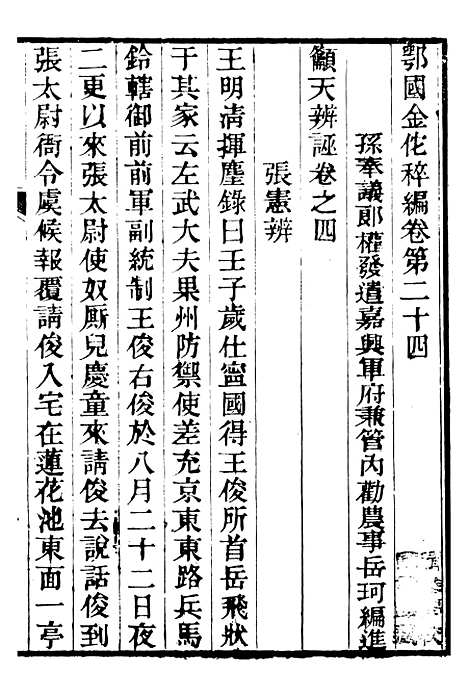 鄂國金佗稡編卷第二十四
孫奉議郎權發遣嘉興軍府兼管內勸農事岳珂編進
籲天辨誣卷之四
張憲辨
王明清揮麈錄曰壬子歲仕寧國得王俊所首岳飛狀
于其家云左武大夫果州防禦使差充京東東路兵馬
鈐轄御前前軍副統制王俊右俊於八月二十二日夜
二更以來張太尉使奴廝兒慶童來請俊去說話俊到
張太尉衙令虞候報覆請俊入宅在蓮花池東面一亭